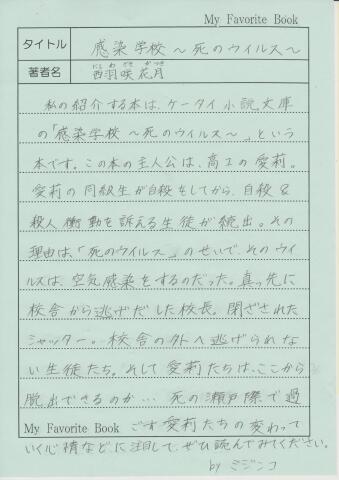 My Favorite Book
タイトル 感染学校~死のウイルス~
にしわざきかつき
著者名 西羽咲花月
私の紹介する本は、ケータイ小説文庫
の「感染学校~死のウイルス~」という
本です。この本の主人公は、高2の愛莉。
愛莉の同級生が自殺をしてから、自殺&
殺人衝動を訴える生徒が続出。その
理由は、「死のウイルス」のせいで、そのウイ
ルスは、空気感染をするのだった。真っ先に
校舎から逃げだした校長。閉ざされた
シャッター。校舎の外へ逃げられな
い生徒たち。そして愛莉たちは、ここから
脱出できるのか… 死の瀬戸際で過
My Favorite Book ごす愛莉たちの変わって
いく心情などに注目して、ぜひ読んでみてください。
by ミジンコ